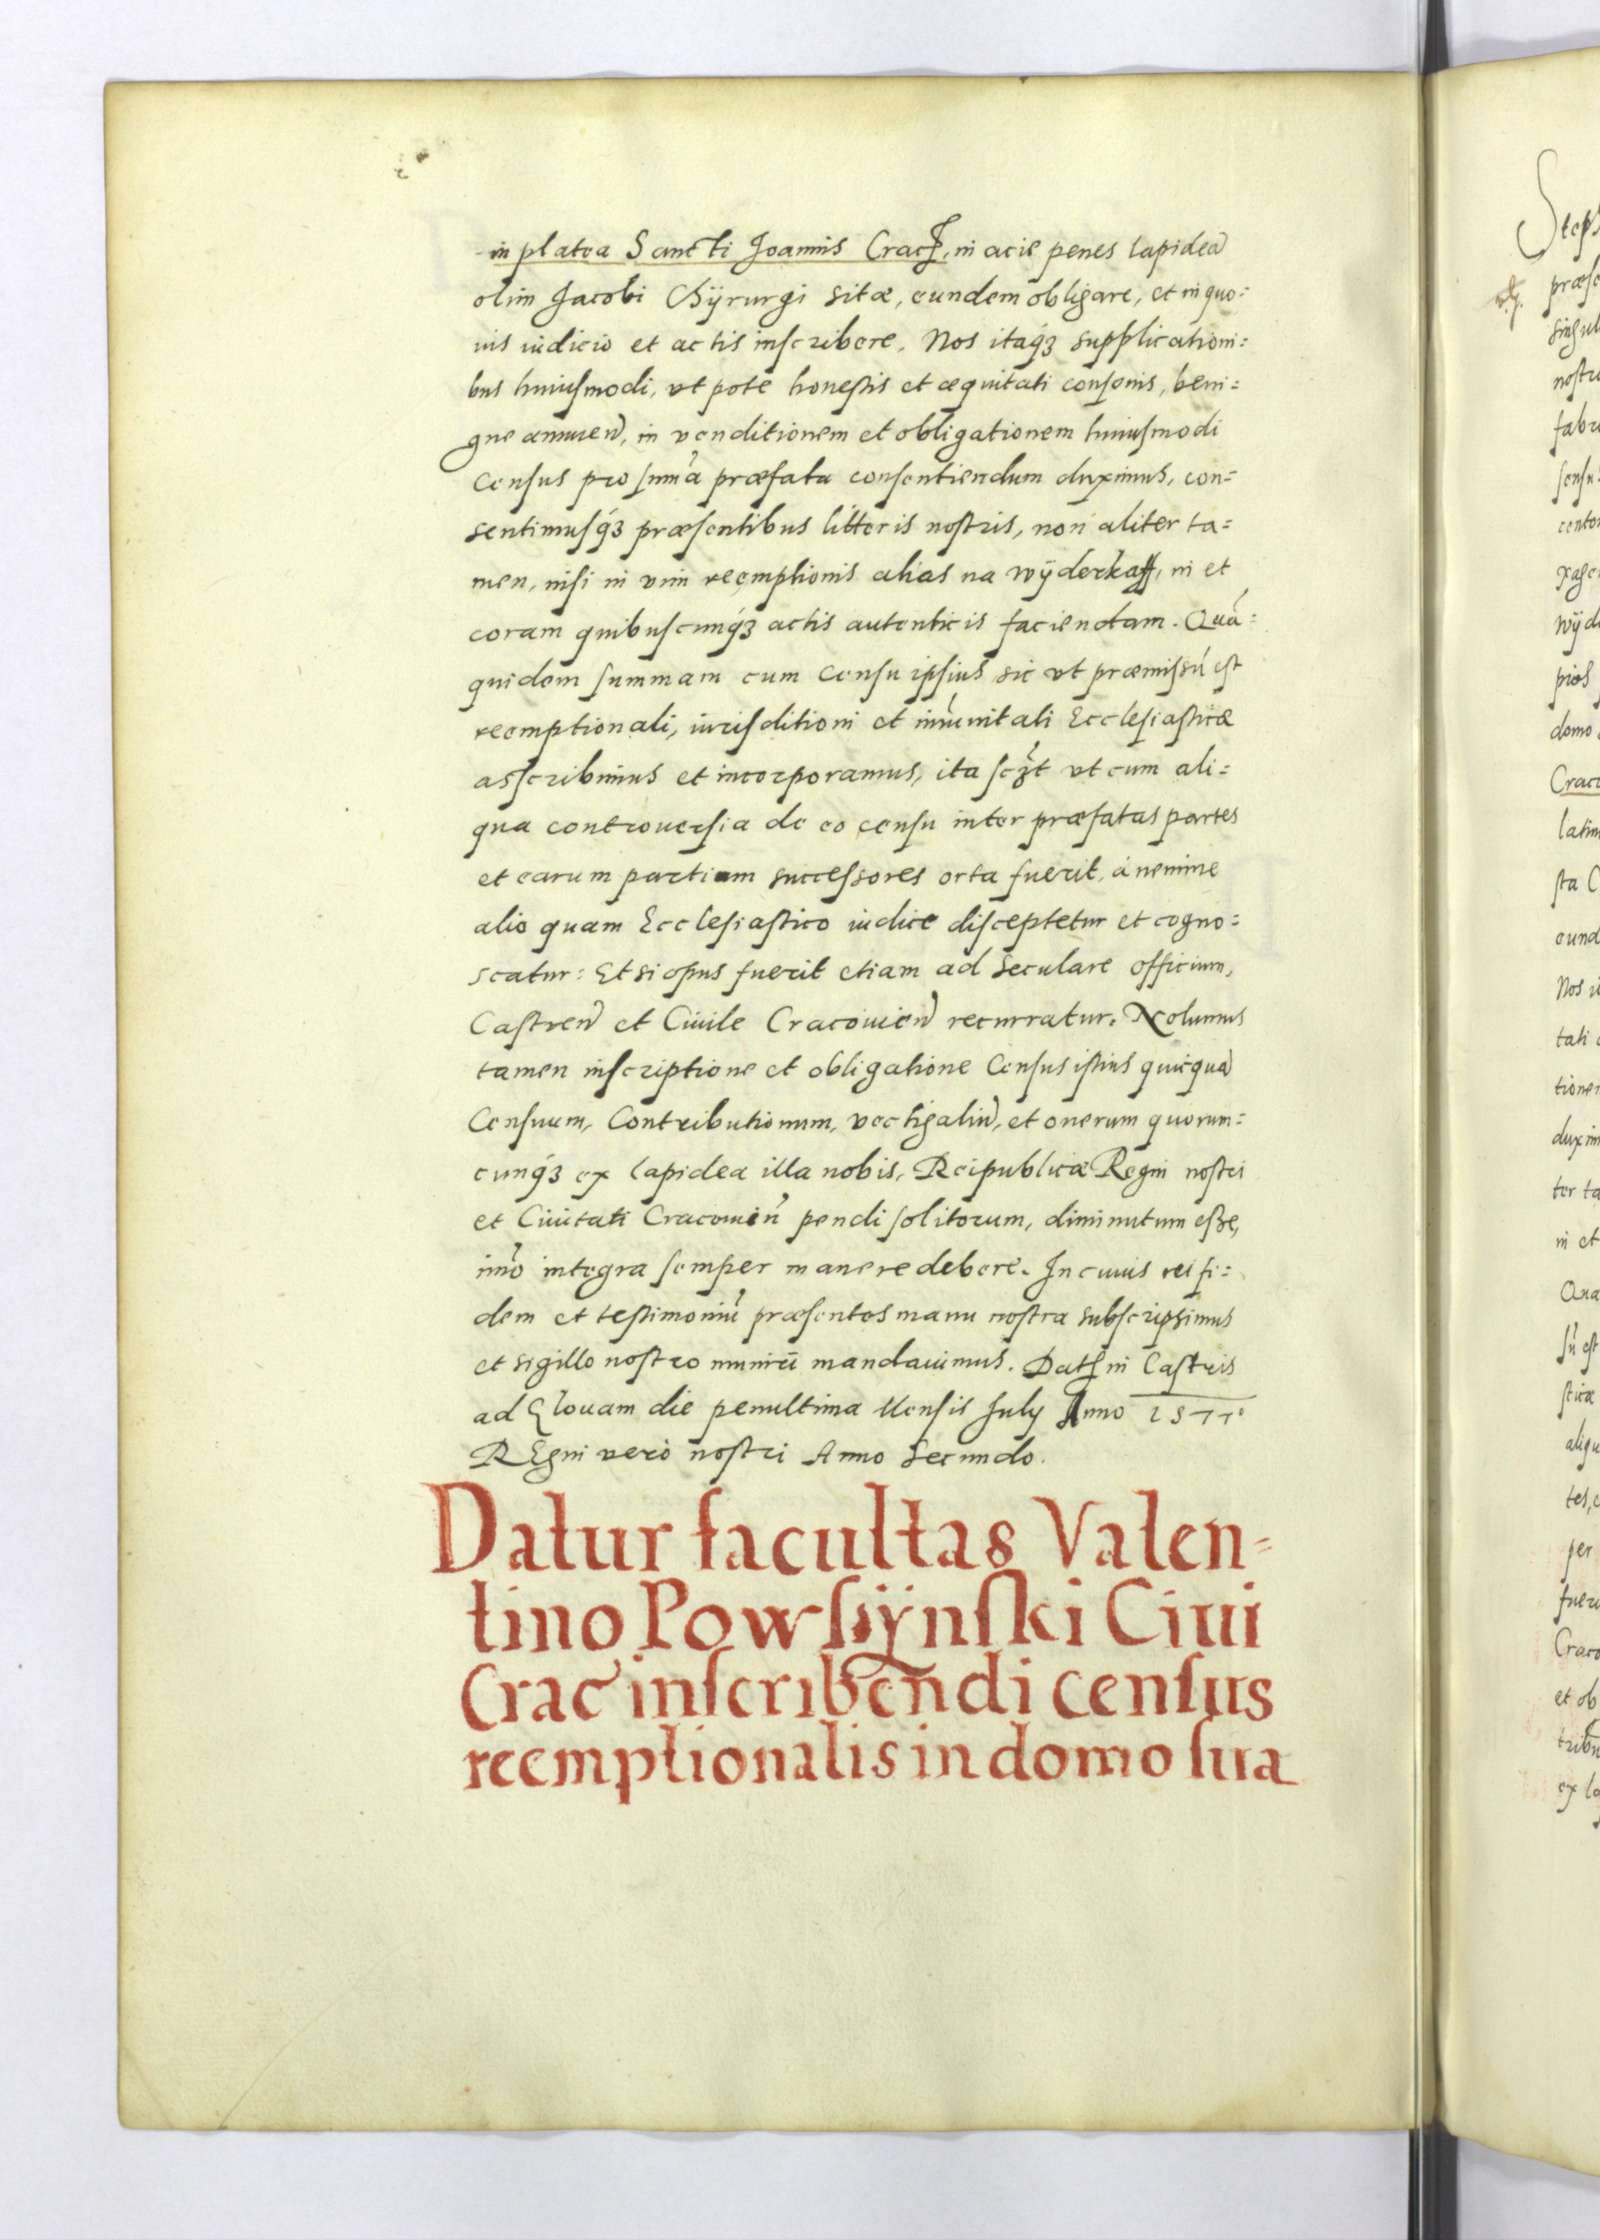 in platea Sancti Joannis Crac, in acie penes lapideā
olim Jacobi Chÿrurgi sitæ, eundem obligare, et in quo=
uis iudicio et actis inscribere. Nos itaqȝ supplicationi=
bus huiusmodi, vt pote honestis et æquitati consonis, beni=
gne annuen̄, in venditionem et obligationem huiusmodi
Census pro sum̄a præfata consentiendum duximus, con=
sentimusqȝ præsentibus litteris nostris, non aliter ta=
men, nisi in vim reemptionis alias na wÿderkaff, in et
coram quibuscunqȝ actis autenticis faciendam. Quā=
quidem summam cum Censu ipsius sic vt præmissū est
reemptionali, iurisditioni et im̄unitati Ecclesiasticæ
asscribimus et incorporamus, ita scȝt vt cum ali=
qua controuersia de eo censu inter præfatas partes
et earum partium successores orta fuerit, à nemine
alio quam Ecclesiastico iudice disceptetur et cogno=
scatur: Et si opus fuerit etiam ad seculare officium,
Castren̄ et Ciuile Cracouien̄ recurratur. Nolumus
tamen inscriptione et obligatione Census istius quicquā
Censuum, Contributionum, vectigaliū, et onerum quorum=
cunqȝ ex lapidea illa nobis, Reipublicæ Regni nostri
et Ciuitati Cracouien̄ pendi solitorum, diminutum esse,
im̄o integra semper manere debere. In cuius rei fi=
dem et testimoniū præsentes manu nostra subscripsimus
et sigillo nostro muniri mandauimus. Dat in Castris
ad Glouam die penultima Mensis July Anno 1577
REgni verò nostri Anno Secundo.
Datur facultas Valen=
tino Powsÿnski Ciui
Crac inscribendi census
reemptionalis in domo sua
Steph
præse
singul
nostr
fabr
sensu
cento
wÿd
pios
domo
Crac
latim
sta C
eund
Nos i
tati
tione
duxim
ter ta
in et
Qua
sū est
sticæ
aliqu
tes,
per
fuer
Craco
et ob
tribu
ex la